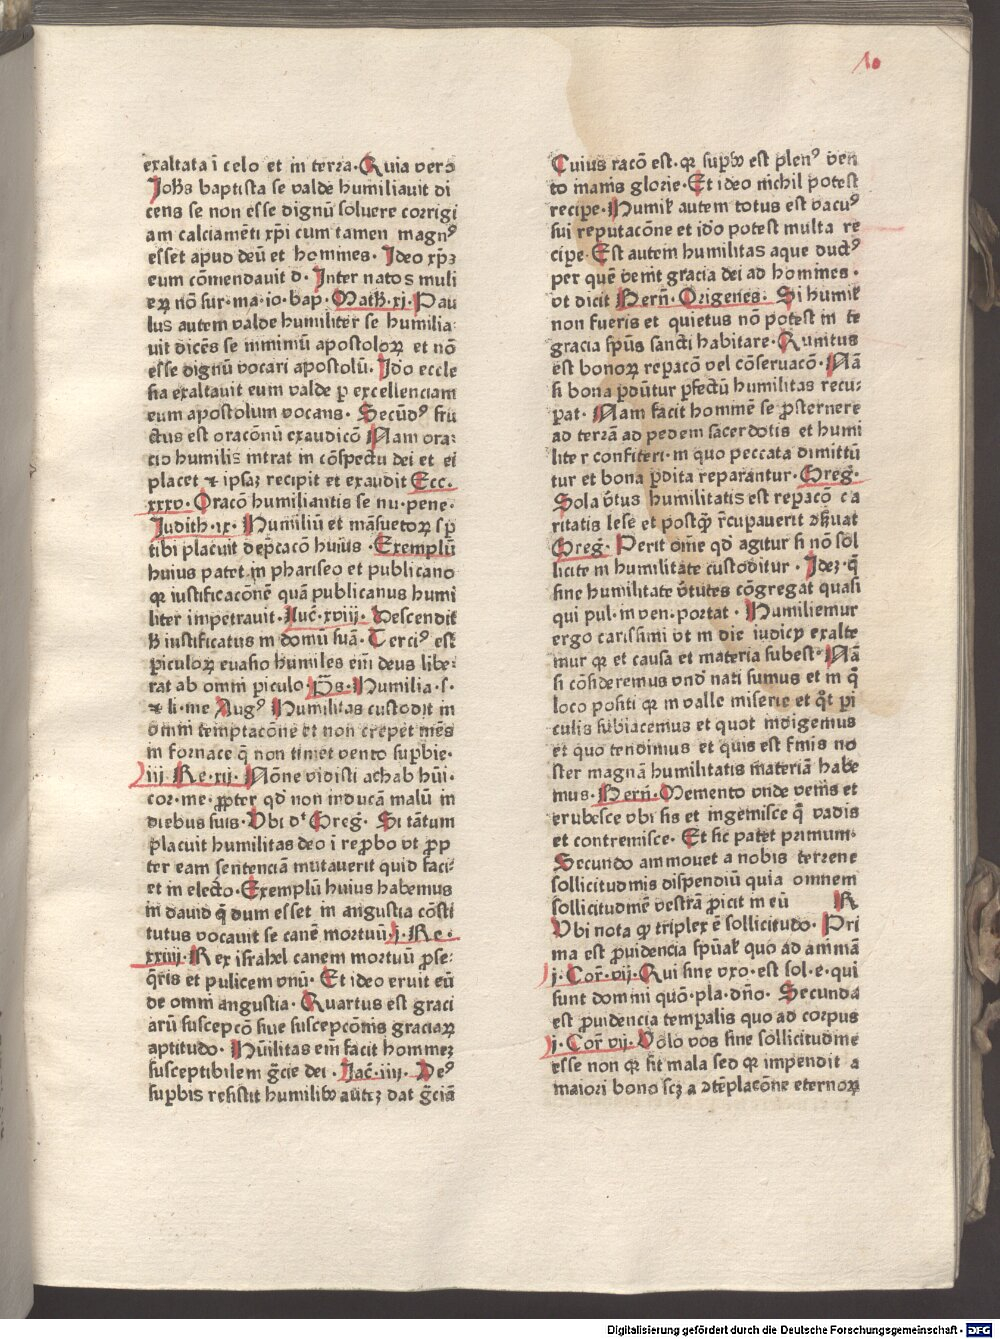 10
exaltata ī celo et in terra. Quia vero
Johēs baptista se valde humiliauit di
cens se non esse dignū soluere corrigi
am calciamēti xp̄i cum tamen magnꝰ
esset apud deū et homines. Ideo xp̄ꝫ
eum cōmendauit d. Inter natos muli
eꝝ nō sur. ma. io. bap. Math. xi. Pau
lus autem valde humiliter se humilia
uit dicēs se minimū apostoloꝝ et nō
esse dignū vocari apostolū. Ido eccle
sia exaltauit eum valde ꝑ excellenciam
eum apostolum vocans. Secūdꝰ fru
ctus est oracōnū exaudicō Nam ora:
cio humilis intrat in cōspectu dei et ei
placet et ipsaꝫ recipit et exaudit Ecc.
xxxv. Oracō humiliantis se nu. pene.
Judith. ix. Humiliū et māsuetoꝝ sꝑ
tibi placuit dep̄cacō huius. Exemplū
huius patet in phariseo et publicano
qꝛ iustificacōnē quā publicanus humi
liter impetrauit. Luc̄. xviij. Descendit
h̄ iustificatus in domū suā. Terciꝰ est
ꝑiculoꝝ euasio humiles em̄ deus libe:
rat ab omni ꝑiculo. Pš. Humilia. s.
et li. me Augꝰ Humilitas custodit in
omni temptacōne et non crepet mēs
in fornace q̄ non timet vento suꝑbie.
iij. Re. xij. Nōne vidisti achab hūi.
cor. me. ꝓpter qd̄ non inducā malū in
diebus suis. Vbi dt Greḡ. Si tātum
placuit humilitas deo ī reꝓbo vt ꝓp
ter eam sentenciā mutauerit quid faci:
et in electo. Exemplū huius habemus
in dauid q̄ dum esset in angustia cōsti
tutus vocauit se canē mortuū. j. Re.
xxiiij. Rex israhel canem mortuū ꝑse:
q̄ris et pulicem vnū. Et ideo eruit eū
de omni angustia. Quartus est graci
arū suscepcō siue suscepcōnis graciaꝝ
aptitudo. Hūilitas em̄ facit homineꝫ
susceptibilem gr̄cie dei. Jac̄. iiij. Deꝰ
suꝑbis resistit humilibꝰ auteꝫ dat gr̄ciā
Cuius racō est. qꝛ suꝑbꝰ est plenꝰ ven
to inanis glorie. Et ideo nichil potest
recipe. Humil̄ autem totus est vacuꝰ
sui reputacōne et ido potest multa re
cipe. Est autem humilitas aque ductꝰ
per quē venit gracia dei ad homines.
vt dicit Bern̄. Origenes. Si humil̄
non fueris et quietus nō potest in te
gracia sp̄us sancti habitare. Quintus
est bonoꝝ reparacō vel cōseruacō. Nā
si bona ꝑdūtur ꝑfectū humilitas recu:
pat. Nam facit hominē se ꝓsternere
ad terrā ad pedem sacerdotis et humi
liter confiteri. in quo peccata dimittū
tur et bona ꝑdita reparantur. Greḡ.
Sola v̄tus humilitatis est repacō ca
ritatis lese et postq̄ȝ r̄cupauerit ꝯs̄uat
Greḡ. Perit om̄e qd̄ agitur si nō sol
licite in humilitate custoditur. Ideꝫ. q̄
sine humilitate v̄tutes cōgregat quasi
qui pul. in ven. portat. Humiliemur
ergo carissimi vt in die iudicij exalte
mur qꝛ et causa et materia subest. Nā
si cōsideremus vnd̄ nati sumus et in q̄
loco positi qꝛ in valle miserie et q̄t ꝑi
culis subiacemus et quot indigemus
et quo tendimus et quis est finis no
ster magnā humilitatis materiā habe
mus. Bern̄. Memento vnde venis et
erubesce vbi sis et ingemisce q̄ vadis
et contremisce. Et sic patet primum.
Secundo ammouet a nobis terrene
sollicitudinis dispendiū quia omnem
sollicitudinē vestrā ꝓicit in eū R
Vbi nota qꝙ triplex ē sollicitudo. Pri
ma est ꝓuidencia sp̄ual̄ quo ad animā
j. Cor̄. vij. Qui sine vxo. est sol. e. qui
sunt domini quō. pla. dn̄o. Secunda
est ꝓuidencia temꝑalis quo ad corpus
j. Cor̄. vij. Volo vos sine sollicitudine
esse non qꝛ sit mala sed qꝛ impendit a
maiori bono scꝫ a ꝯtēplacōne eternoꝝ
Digitalisierung gefördert durch die Deutsche Forschungsgemeinschaft - DFG